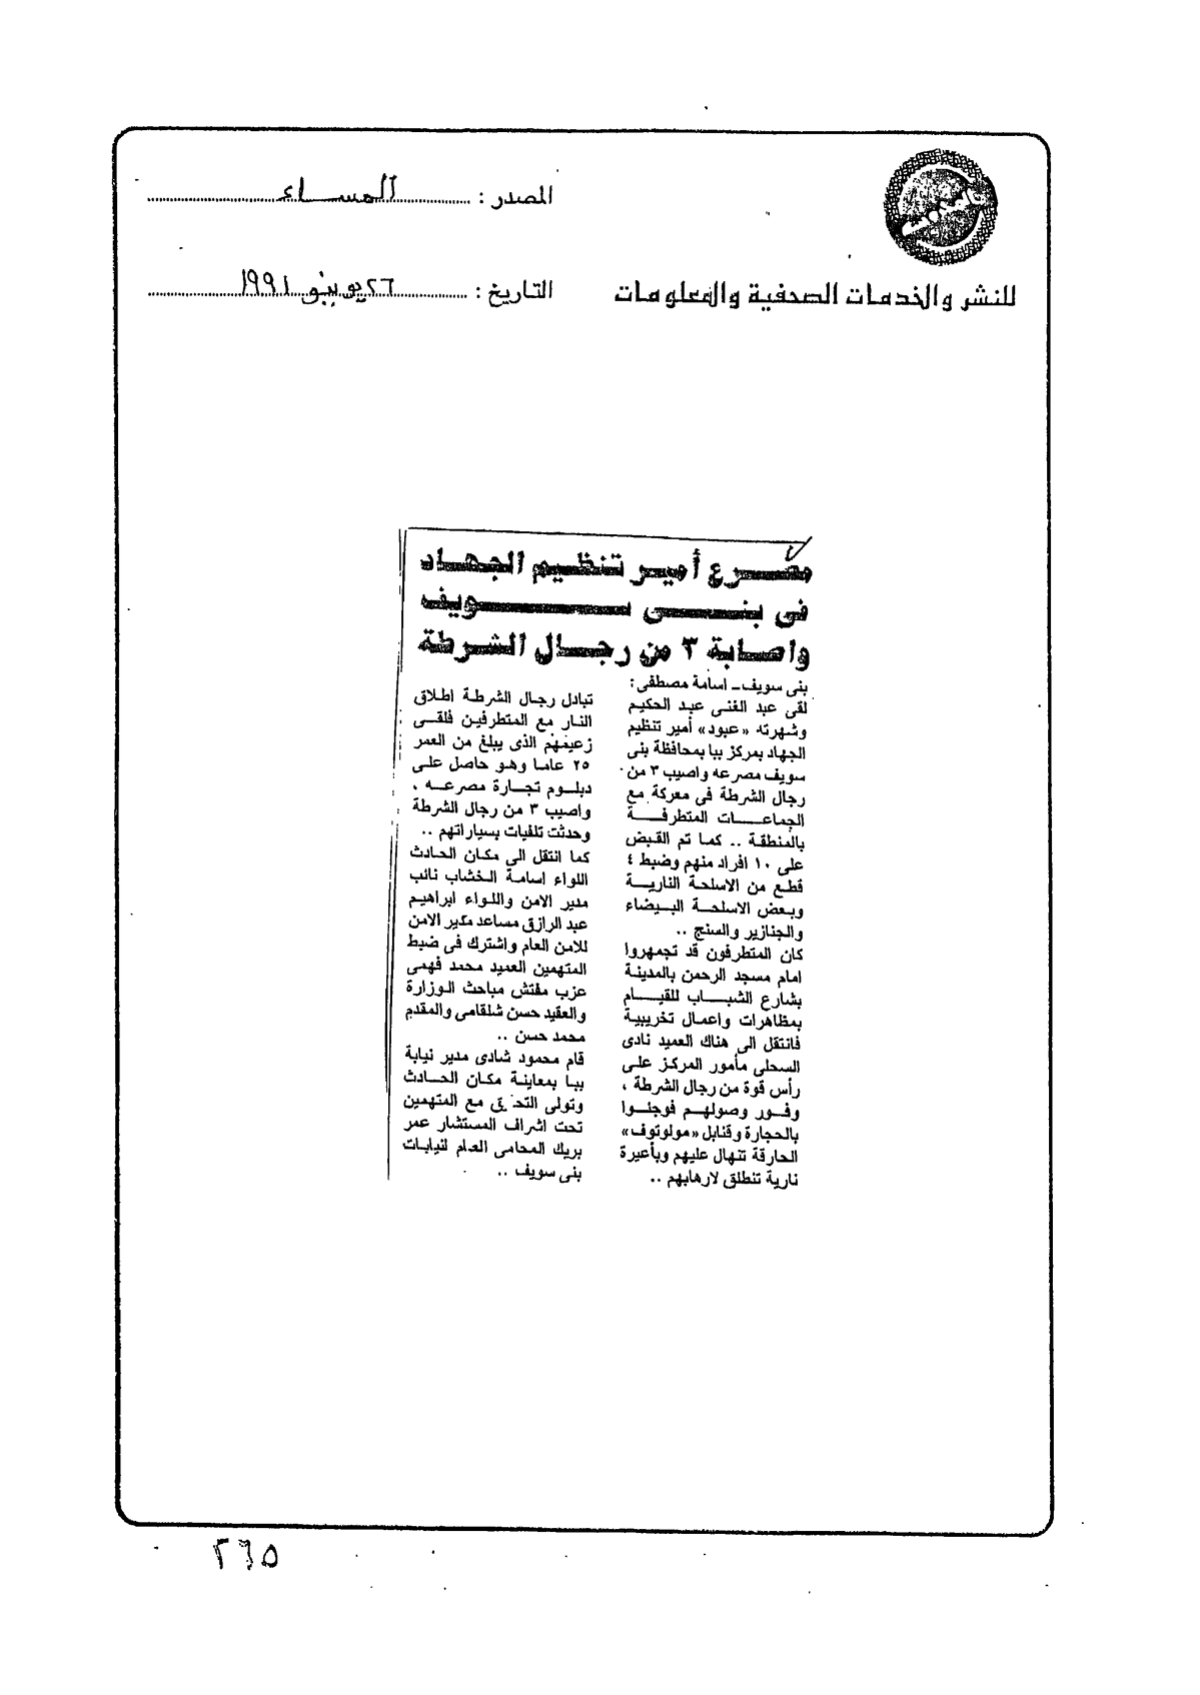 المصدر : المساء
للنشر والخدمات الصحفية والمعلومات
التاريخ : ٢٦ يونيو ١٩٩١
مصرع أمير تنظيم الجهاد
فى بنى سويف
واصابة ٣ من رجال الشرطة
بنى سويف ـ اسامة مصطفى :
لقى عبد الغنى عبد الحكيم
وشهرته « عبود » أمير تنظيم
الجهاد بمركز ببا بمحافظة بنى
سويف مصرعه واصيب ٣ من
رجال الشرطة فى معركة مع
الجماعات المتطرفة
بالمنطقة .. كما تم القبض
على ١٠ افراد منهم وضبط ٤
قطع من الاسلحة النارية
وبعض الاسلحة البيضاء
والجنازير والسنج ..
كان المتطرفون قد تجمهروا
امام مسجد الرحمن بالمدينة
بشارع الشباب للقيام
بمظاهرات واعمال تخريبية
فانتقل الى هناك العميد نادى
السحلى مأمور المركز على
رأس قوة من رجال الشرطة ،
وفور وصولهم فوجئوا
بالحجارة وقنابل «مولوتوف»
الحارقة تنهال عليهم وبأعيرة
نارية تنطلق لارهابهم ..
تبادل رجال الشرطة اطلاق
النار مع المتطرفين فلقى
زعيمهم الذى يبلغ من العمر
٢٥ عاما وهو حاصل على
دبلوم تجارة مصرعه ،
واصيب ٣ من رجال الشرطة
وحدثت تلفيات بسياراتهم ..
كما انتقل الى مكان الحادث
اللواء اسامة الخشاب نائب
مدير الامن واللواء ابراهيم
عبد الرازق مساعد مدير الامن
للامن العام واشترك فى ضبط
المتهمين العميد محمد فهمى
عزب مفتش مباحث الوزارة
والعقيد حسن شلقامى والمقدم
محمد حسن ..
قام محمود شادى مدير نيابة
ببا بمعاينة مكان الحادث
وتولى التحقيق مع المتهمين
تحت اشراف المستشار عمر
بريك المحامى العام لنيابات
بنى سويف ..
٢٦٥